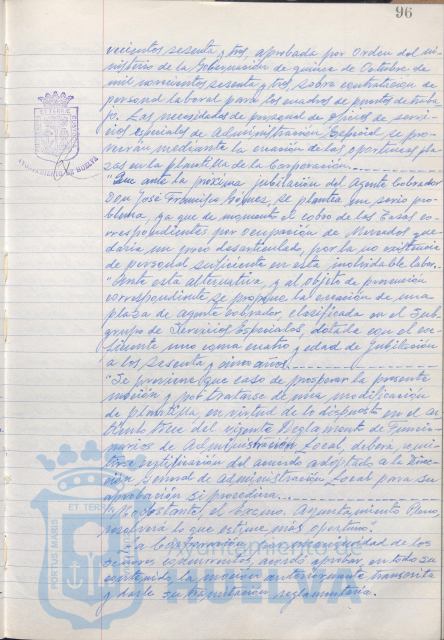 96
vecientos sesenta y tres, aprobada por Orden del Mi-
nisterio de la Gobernación de quince de Octubre de
mil novecientos sesenta y tres, sobre contratación de
personal laboral para los cuadros de puestos de traba-
jo. Las necesidades de personal de Oficios de servi-
cios especiales de Administración Especial se pro-
veerán mediante la creación de las oportunas pla-
zas en la plantilla de la Corporación.
"Que ante la próxima jubilación del Agente Cobrador
Don José Gómez, se plantea un serio pro-
blema, ya que de momento el cobro de las Tasas co-
rrespondientes por ocupación de Mercados que-
daría un poco desarticulado, por la no existencia
de personal suficiente en esta ineludible labor.
"Ante esta alternativa, y al objeto de provisión
correspondiente se propone la creación de una
plaza de Agente Cobrador, clasificada en el Sub-
grupo de Servicios Especiales, dotada con el co-
eficiente uno coma cuatro y edad de jubilación
a los sesenta y cinco años.
"Se previene que caso de prosperar la presente
moción y por tratarse de una modificación
de plantilla, en virtud de lo dispuesto en el ar-
tículo trece del vigente Reglamento de Funcio-
narios de Administración Local, deberá remi-
tirse certificación del acuerdo adoptado a la Direc-
ción General de Administración Local para su
aprobación si procediera.
"No obstante, el Excmo. Ayuntamiento Pleno,
resolverá lo que estime más oportuno".
La Corporación, por unanimidad de los
señores concurrentes, acordó aprobar, en todo su
contenido la moción anteriormente transcrita
y darle su tramitación reglamentaria.
AYUNTAMIENTO DE HUELVA
PORTUS MARIS ET TERRAE
Ayuntamiento de
HUELVA